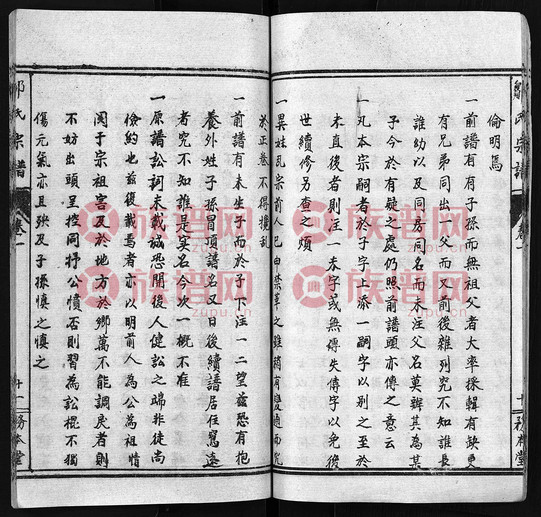 倫明焉
一前譜有有子孫而無祖父者大率採輯有缺更
有兄弟同出一父而又前後雜列究不知誰長
誰幼以及同房同名而未注父名莫辨其為某
子今於有疑之處仍照前譜頭亦傳之意云
一凡本宗嗣者於子字上添一嗣字以別之至於
未直後者則注一夭字或無傳失傳字以免後
世續修另查之煩
一異姓乱宗前已申禁革之雖稍有變通而究
於正卷不得攙乱
一前譜有未生子而於子下注一二望茲恐有抱
養外姓子孫冒頂譜名又日後續譜居住窵遠
者究不知誰是实名今次一概不准
一原譜訟詞未載誠恐開後人健訟之端非徒尚
儉約也茲復載焉者亦以明前人為公為祖情
関于宗祖宫及於地方於鄉萬不能調戾者則
不妨出頭呈控同抒公憤否則習為訟棍不獨
傷元氣亦且殃及子孫慎之慎之
鄒氏宗譜
卷一
十一
務本堂
鄒氏宗譜
卷一
十
務本堂
族谱网
www.zupu.cn